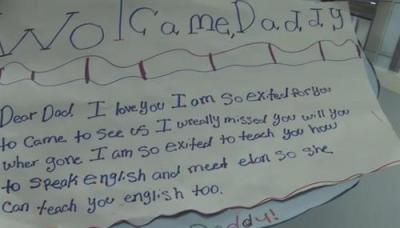 Wol Came, Daddy
Dear Dad. I love you I am so exited for you
to came to see us I wreally missed you will you
wher gone I am so exited to teach you how
to speak english and meet elan so she
can teach you english too.
Daddy!